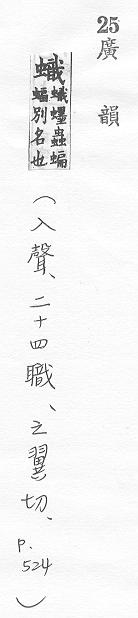 25 廣韻
蟙 蟙䘃蟲蝙
蝠別名也
（入聲、二十四職、之翼切、p.524）